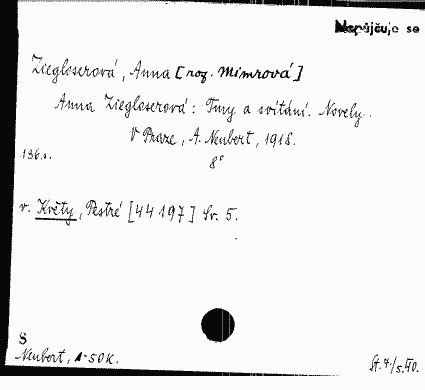 Nepůjčuje se
Ziegloserová, Anna [roz. Mimrová]
Anna Ziegloserová: Tmy a svítání. Novely.
V Praze, A. Neubert, 1918.
136 s.
8°
v. Květy, Pestré [44197] Sv. 5.
S
Neubert, 1·50 K.
St. 4/5.40.